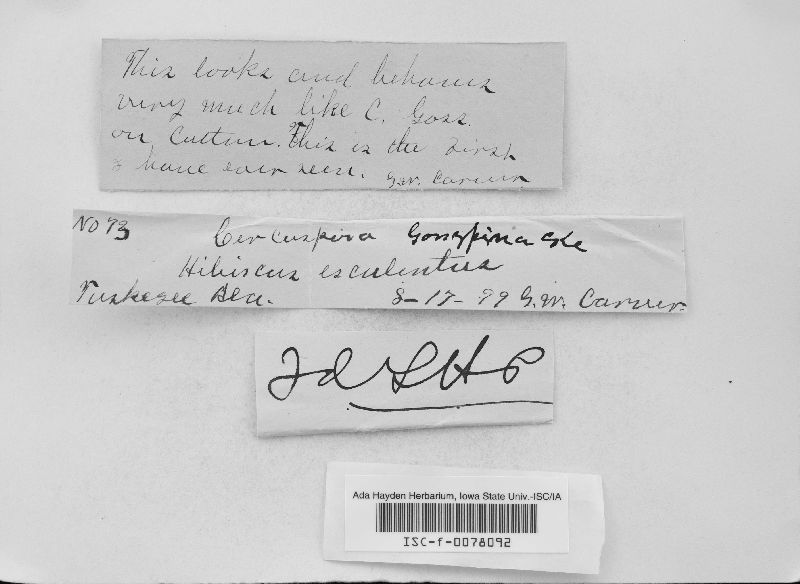 This looks and behaves
very much like C. Goss.
on Cotton. This is the first
I have ever seen. G.W. Carver
No 93 Cercospora Gossypina Cke
Hibiscus esculentus
Tuskegee Ala. 8-17-99 G.W. Carver.
Id LHP
Ada Hayden Herbarium, Iowa State Univ.-ISC/IA
ISC-f-0078092